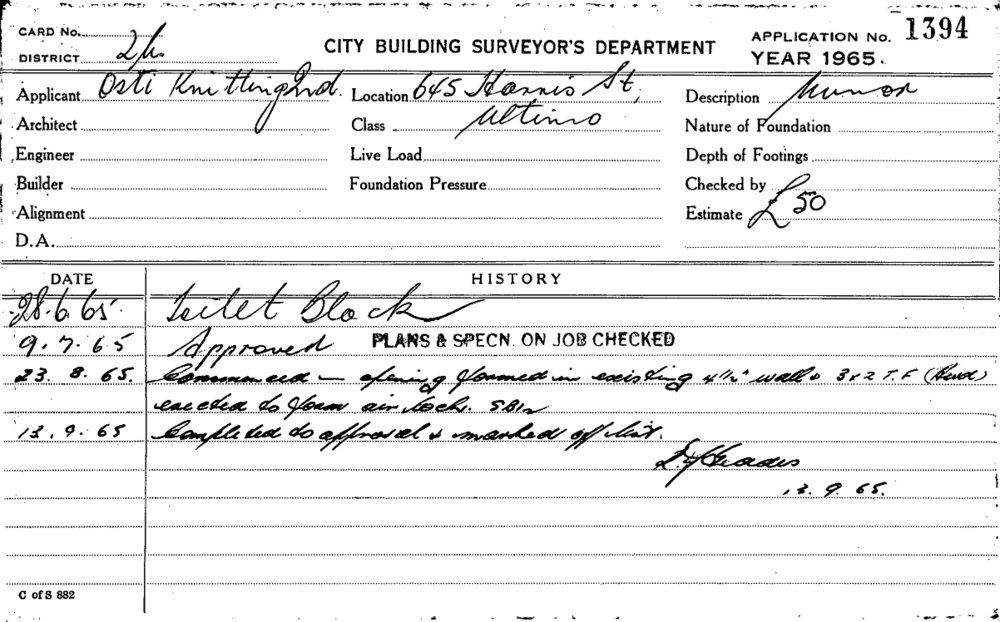 CARD No.
DISTRICT
CITY BUILDING SURVEYOR'S DEPARTMENT
APPLICATION No. 1394
YEAR 1965.
Applicant Osti Knitting Ind.
Location 645 Harris St,
Ultimo
Description Minor
Architect
Class
Nature of Foundation
Engineer
Live Load
Depth of Footings
Builder
Foundation Pressure
Checked by
Alignment
Estimate £50
D.A.
DATE HISTORY
28.6.65 Toilet Block
9.7.65 Approved PLANS & SPECN. ON JOB CHECKED
23.8.65. Commenced - opening formed in existing 4½" wall & 3x2 T.F
erected to form air lock.
13.9.65 Completed to approval & marked off list.
13.9.65.
C of S 882